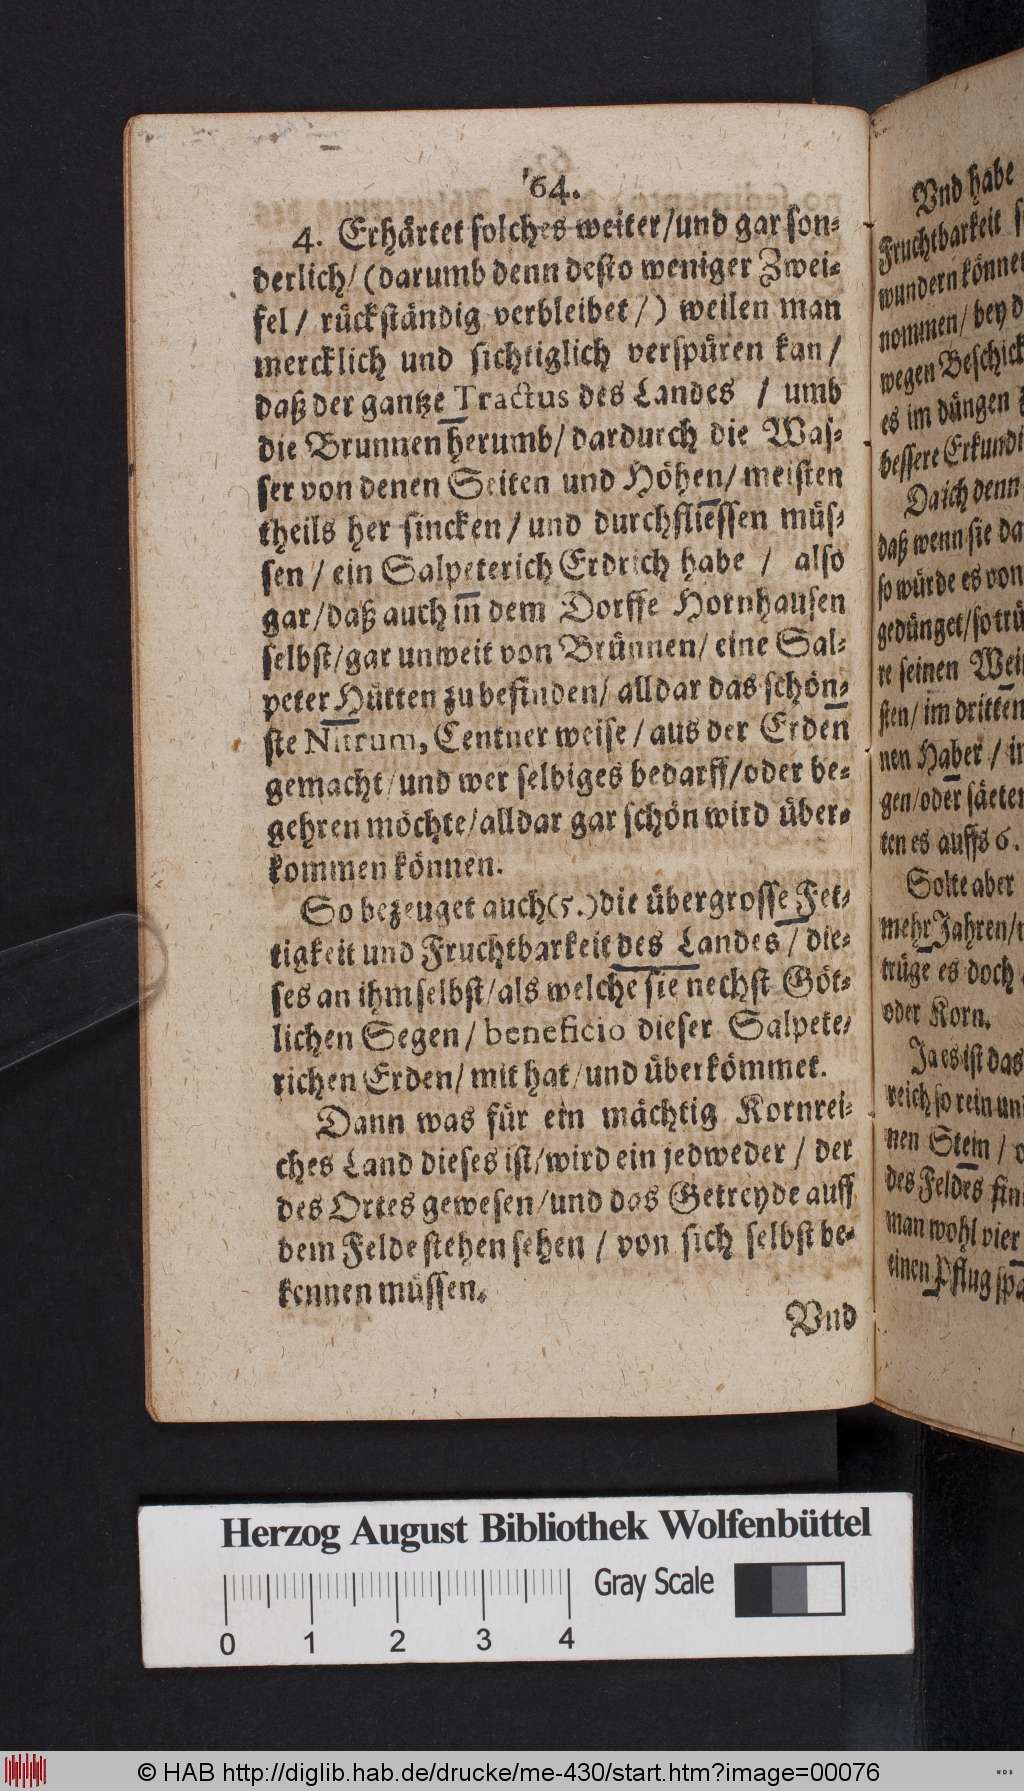 64.
4. Erhärtet solches weiter/und gar son-
derlich/ (darumb denn desto weniger Zwei-
fel/ rückständig verbleibet/) weilen man
mercklich und sichtiglich verspüren kan/
daß der gantze Tractus des Landes / umb
die Brunnen herumb/ dardurch die Was-
ser von denen Seiten und Höhen/ meisten
theils her sincken/und durchfliessen müs-
sen/ ein Salpeterich Erdrich habe / also
gar/daß auch in dem Dorffe Hornhausen
selbst/gar unweit von Brünnen/ eine Sal-
peter Hütten zu befinden/ alldar das schön-
ste Nitrum, Centner weise/aus der Erden
gemacht/und wer selbiges bedarff/oder be-
gehren möchte/alldar gar schön wird über-
kommen können.
So bezeuget auch(5.)die übergrosse Fet-
tigkeit und Fruchtbarkeit des Landes/ die-
ses an ihm selbst/als welche sie nechst Göt-
lichen Segen/ beneficio dieser Salpete-
richen Erden/ mit hat/und überkömmet.
Dann was für ein mächtig Kornrei-
ches Land dieses ist/wird ein jedweder / der
des Ortes gewesen/und das Getreyde auff
dem Felde stehen sehen / von sich selbst be-
kennen müssen.
Vnd
Vnd habe
Fruchtbarkeit
wundern können
nommen/ bey
wegen Beschick
es im düngen
bessere Erkundi
Da ich denn
daß wenn sie da
so würde es von
gedünget/so trü
re seinen Wei
sten/ im dritten
nen Haber / in
gen/oder säeten
ten es auffs 6.
Solte aber
mehr Jahren/
trüge es doch
oder Korn.
Ja es ist das
reich so rein un
nen Stein /
des Feldes fin
man wohl vier
einen Pflug spa
Herzog August Bibliothek Wolfenbüttel
Gray Scale
0 1 2 3 4
© HAB http://diglib.hab.de/drucke/me-430/start.htm?image=00076